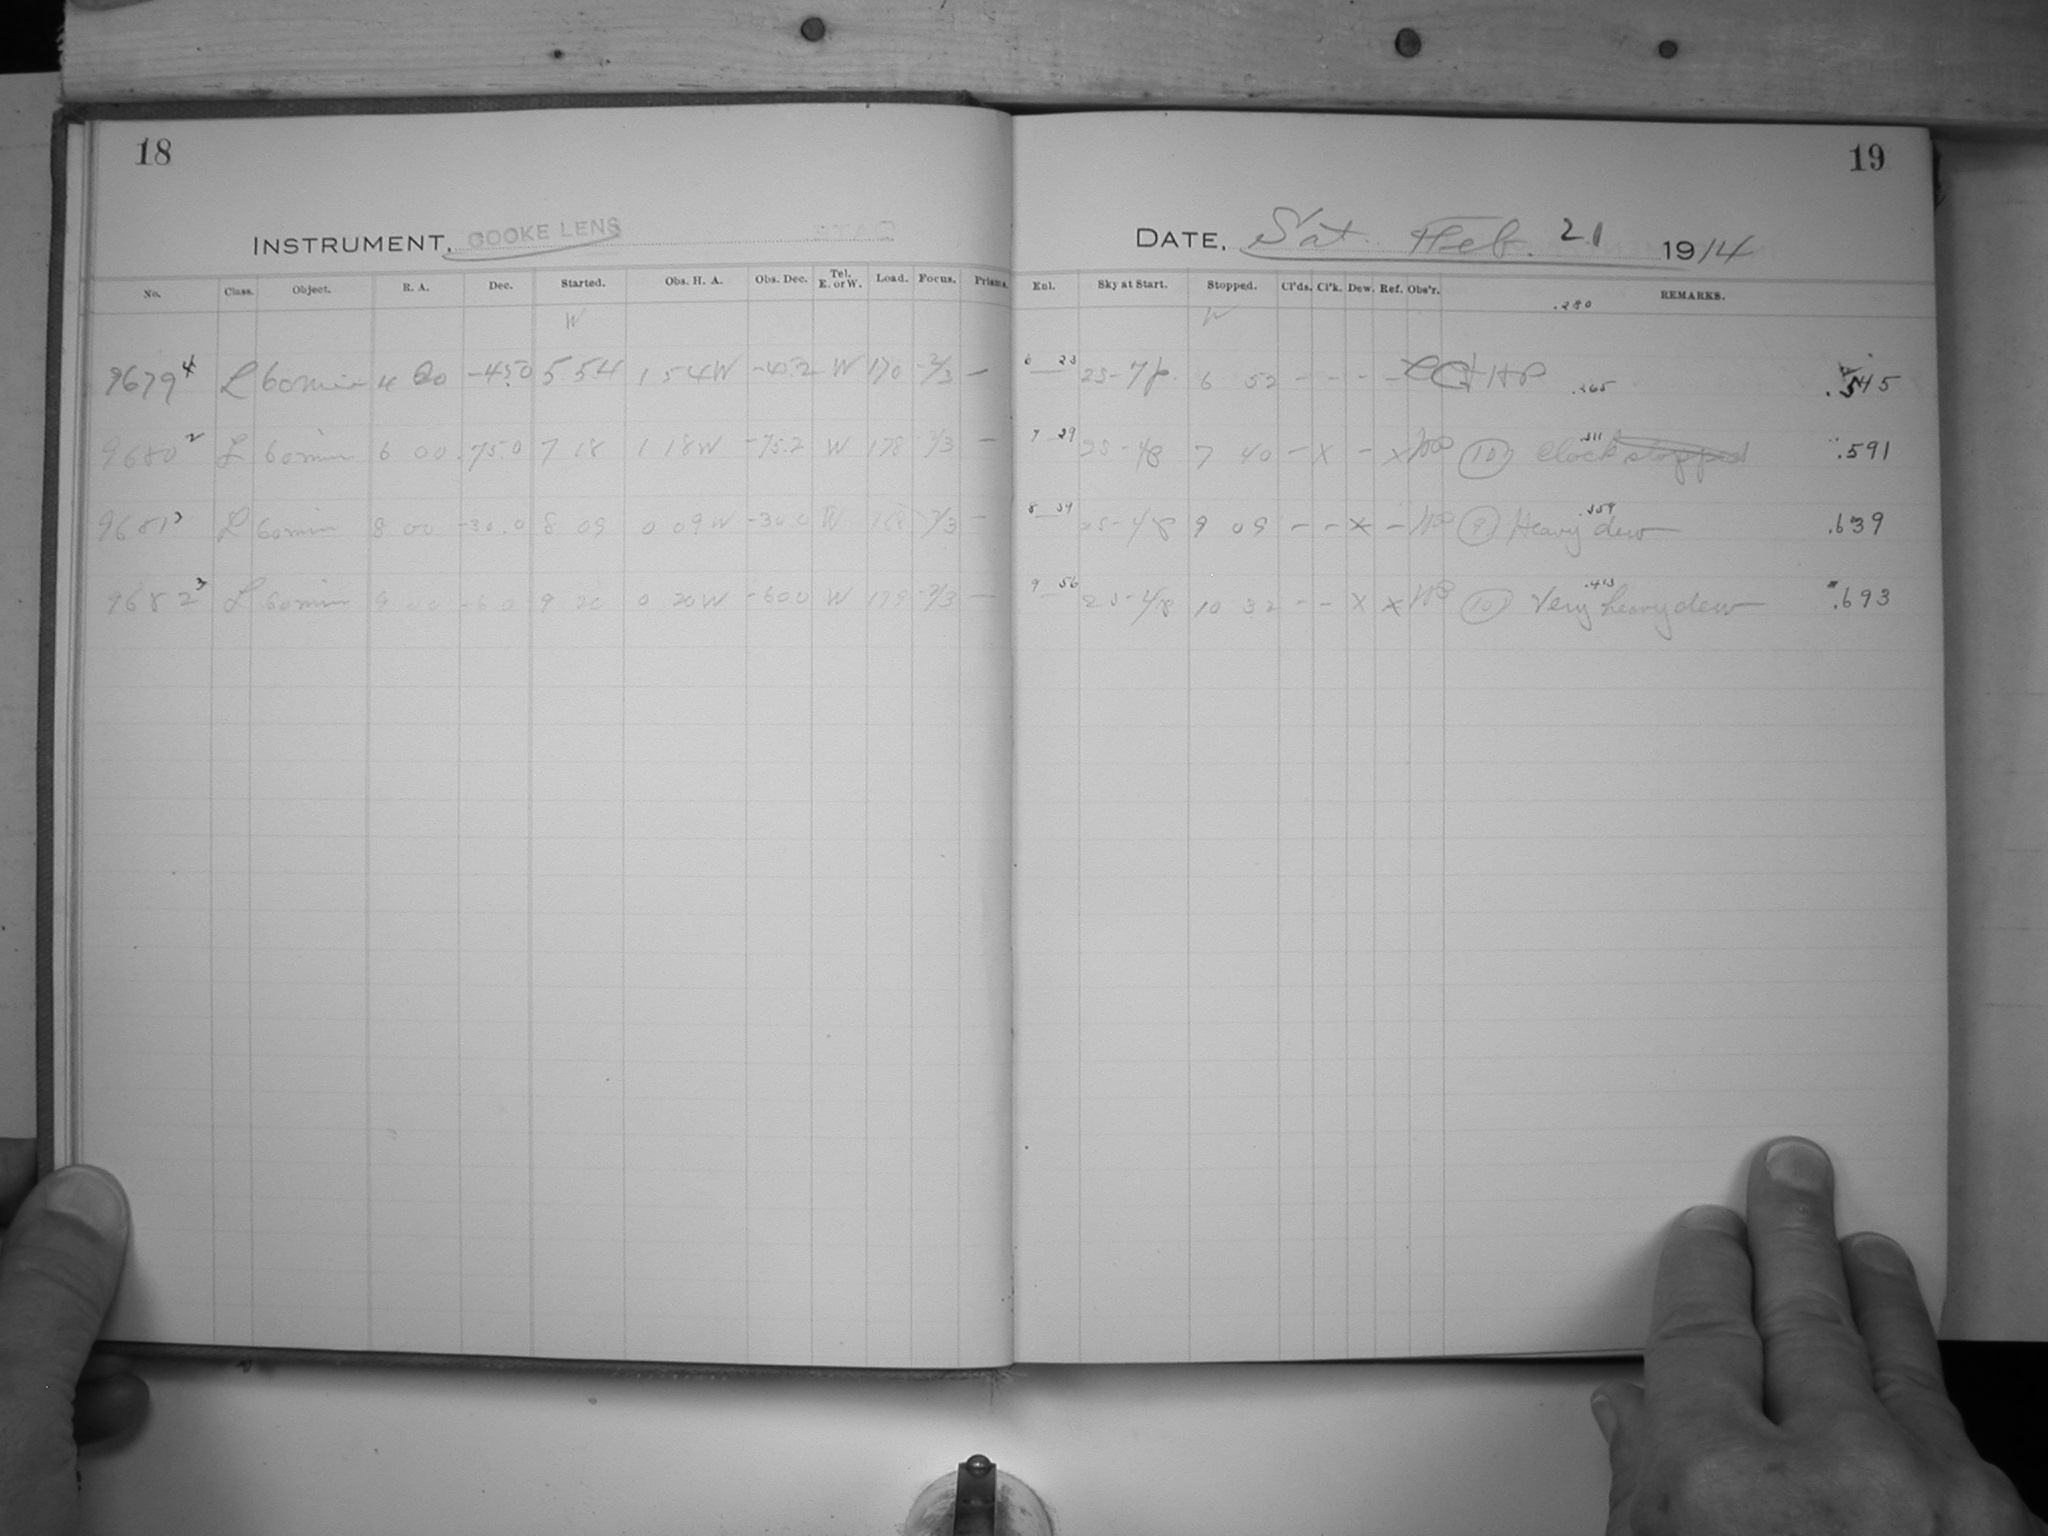 18
INSTRUMENT, COOKE LENS
No. Class. Object. R. A. Dec. Started. Obs. H. A. Obs. Dec. Tel. E. or W. Load. Focus. Prisms.
W
9679 4 L 60 min 4 00 -45.0 5 54 1 54 W W 170 -2/3 —
9680 2 L 60 min 6 00 -75.0 7 18 1 18 W -75.2 W 178 -2/3 —
9681 3 L 60 min 8 00 -30.0 8 09 0 09 W -30.0 W 168 -2/3 —
9682 3 L 60 min 9 00 -60 9 20 0 20 W -60.0 W 179 -2/3 —
19
DATE, Sat. Feb. 21 1914
Enl. Sky at Start. Stopped. Cl'ds. Cl'k. Dew. Ref. Obs'r. REMARKS.
.280
W
6 23 6 52 - - - - .265 .545
7 29 7 40 - X - X (10) Clock stopped .311 .591
8 34 9 09 - - X - (9) Heavy dew .359 .639
9 56 10 32 - - X X (10) Very heavy dew .413 .693